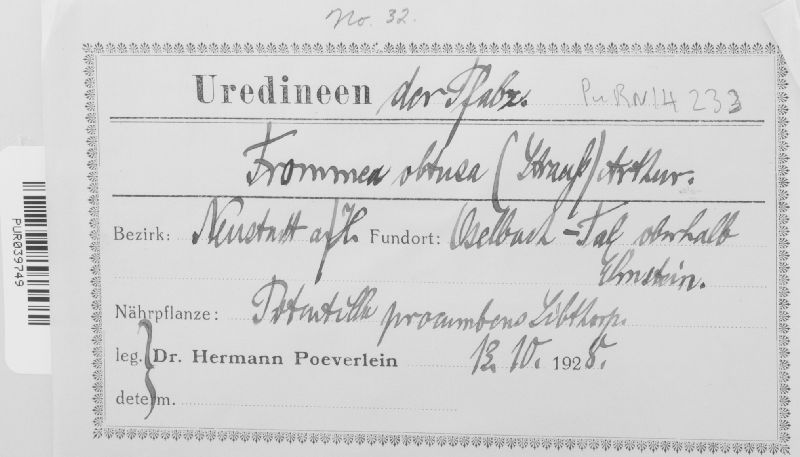 No. 32.
Uredineen der Pfalz.
PURN14233
Frommea obtusa (Strauß) Arthur.
Bezirk: Neustadt a/H. Fundort: -Tal oberhalb
Elmstein.
Nährpflanze: Potentilla procumbens Sibthorp.
leg. Dr. Hermann Poeverlein 1928.
determ.
PUR039749